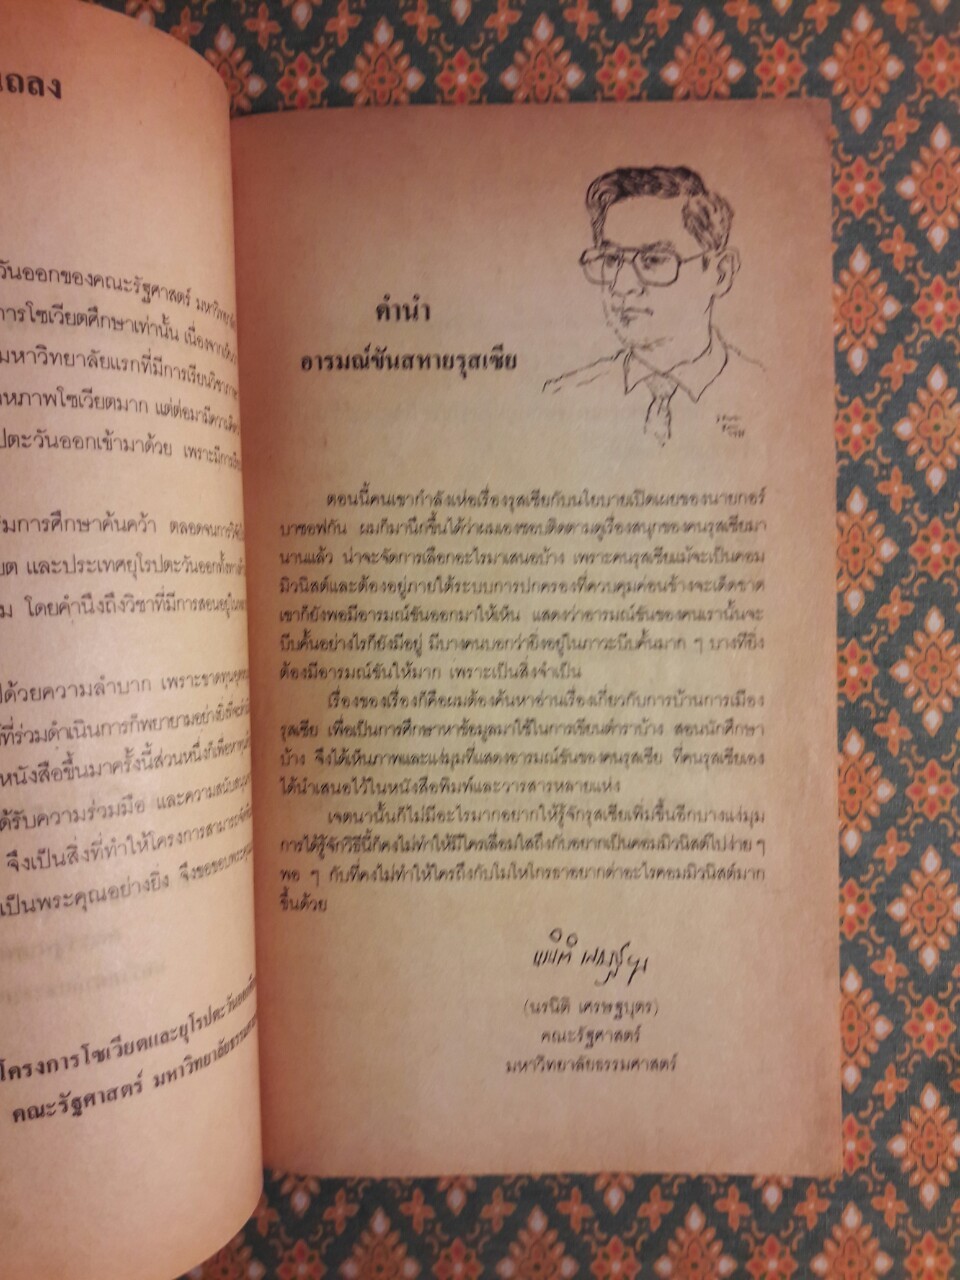 แถลง
วันออกของคณะรัฐศาสตร์ มหาวิทยาลัย
การโซเวียตศึกษาเท่านั้น เนื่องจาก
มหาวิทยาลัยแรกที่มีการเรียนวิชา
หภาพโซเวียตมาก แต่ต่อมามีความ
ปตะวันออกเข้ามาด้วย เพราะมีการ
ริมการศึกษาค้นคว้า ตลอดจนการวิจัย
ยต และประเทศยุโรปตะวันออกทั้งทาง
ม โดยคำนึงถึงวิชาที่มีการสอนอยู่ใน
ปด้วยความลำบาก เพราะขาดทุน
ที่ร่วมดำเนินการก็พยายามอย่างยิ่งที่จะ
หนังสือขึ้นมาครั้งนี้ส่วนหนึ่งก็เพื่อหาทุน
ด้รับความร่วมมือ และความสนับสนุน
จึงเป็นสิ่งที่ทำให้โครงการสามารถ
เป็นพระคุณอย่างยิ่ง จึงขอขอบพระคุณ
โครงการโซเวียตและยุโรปตะวันออกศึกษา
คณะรัฐศาสตร์ มหาวิทยาลัยธรรมศาสตร์
คำนำ
อารมณ์ขันสหายรุสเซีย
ตอนนี้คนเขากำลังเห่อเรื่องรุสเซียกับนโยบายเปิดเผยของนายกอร์
บาชอฟกัน ผมก็มานึกขึ้นได้ว่าผมเองชอบติดตามดูเรื่องสนุกของคนรุสเซียมา
นานแล้ว น่าจะจัดการเลือกอะไรมาเสนอบ้าง เพราะคนรุสเซียแม้จะเป็นคอม
มิวนิสต์และต้องอยู่ภายใต้ระบบการปกครองที่ควบคุมค่อนข้างจะเด็ดขาด
เขาก็ยังพอมีอารมณ์ขันออกมาให้เห็น แสดงว่าอารมณ์ขันของคนเรานั้นจะ
บีบคั้นอย่างไรก็ยังมีอยู่ มีบางคนบอกว่ายิ่งอยู่ในภาวะบีบคั้นมาก ๆ บางทียิ่ง
ต้องมีอารมณ์ขันให้มาก เพราะเป็นสิ่งจำเป็น
เรื่องของเรื่องก็คือผมต้องค้นหาอ่านเรื่องเกี่ยวกับการบ้านการเมือง
รุสเซีย เพื่อเป็นการศึกษาหาข้อมูลมาใช้ในการเขียนตำราบ้าง สอนนักศึกษา
บ้าง จึงได้เห็นภาพและแง่มุมที่แสดงอารมณ์ขันของคนรุสเซีย ที่คนรุสเซียเอง
ได้นำเสนอไว้ในหนังสือพิมพ์และวารสารหลายแห่ง
เจตนานั้นก็ไม่มีอะไรมากอยากให้รู้จักรุสเซียเพิ่มขึ้นอีกบางแง่มุม
การได้รู้จักวิธีนี้ก็คงไม่ทำให้มีใครเลื่อมใสถึงกับอยากเป็นคอมมิวนิสต์ไปง่าย ๆ
พอ ๆ กับที่คงไม่ทำให้ใครถึงกับโมโหโกรธาอยากด่าอะไรคอมมิวนิสต์มาก
ขึ้นด้วย
(นรนิติ เศรษฐบุตร)
คณะรัฐศาสตร์
มหาวิทยาลัยธรรมศาสตร์